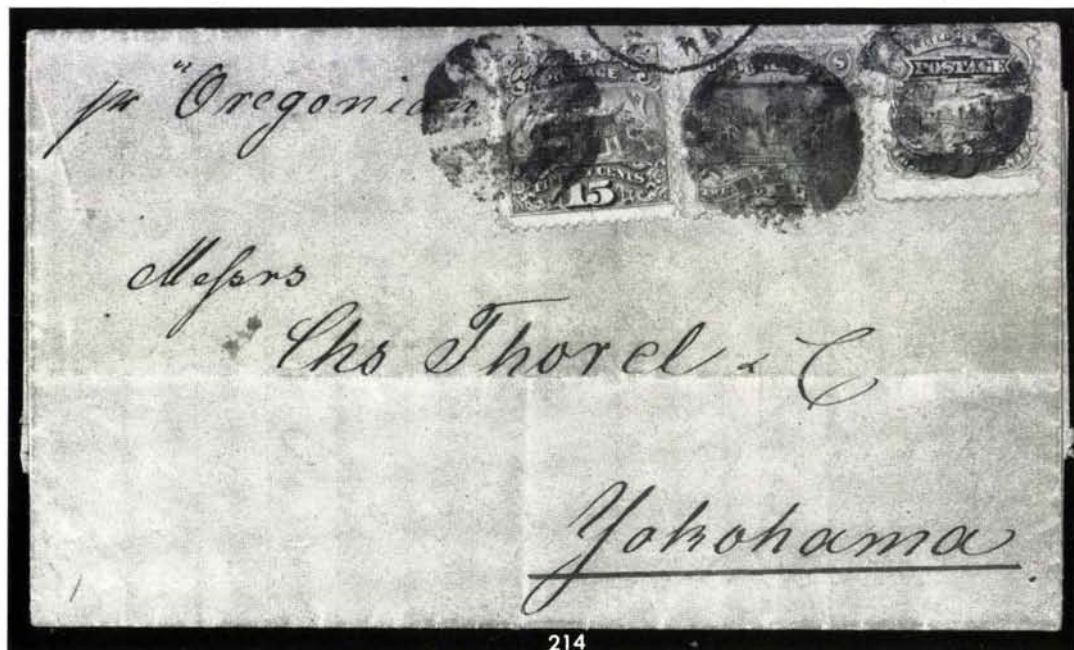 pr "Oregonian
POSTAGE
POSTAGE
15
Messrs
Chs Thorel & C
Yokohama
214